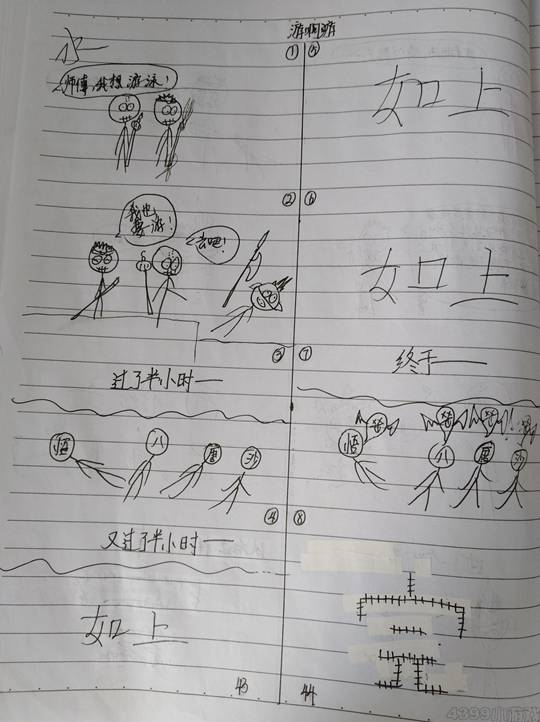 游啊游
① ⑤
水一
师傅,我想游泳!
如上
② ⑥
我也
要游!
去吧!
如上
③ ⑦
过了半小时一
终于一
悟 八 唐 沙
悟 八 唐 沙
④ ⑧
又过了半小时一
如上
完
43 44
4399小游戏